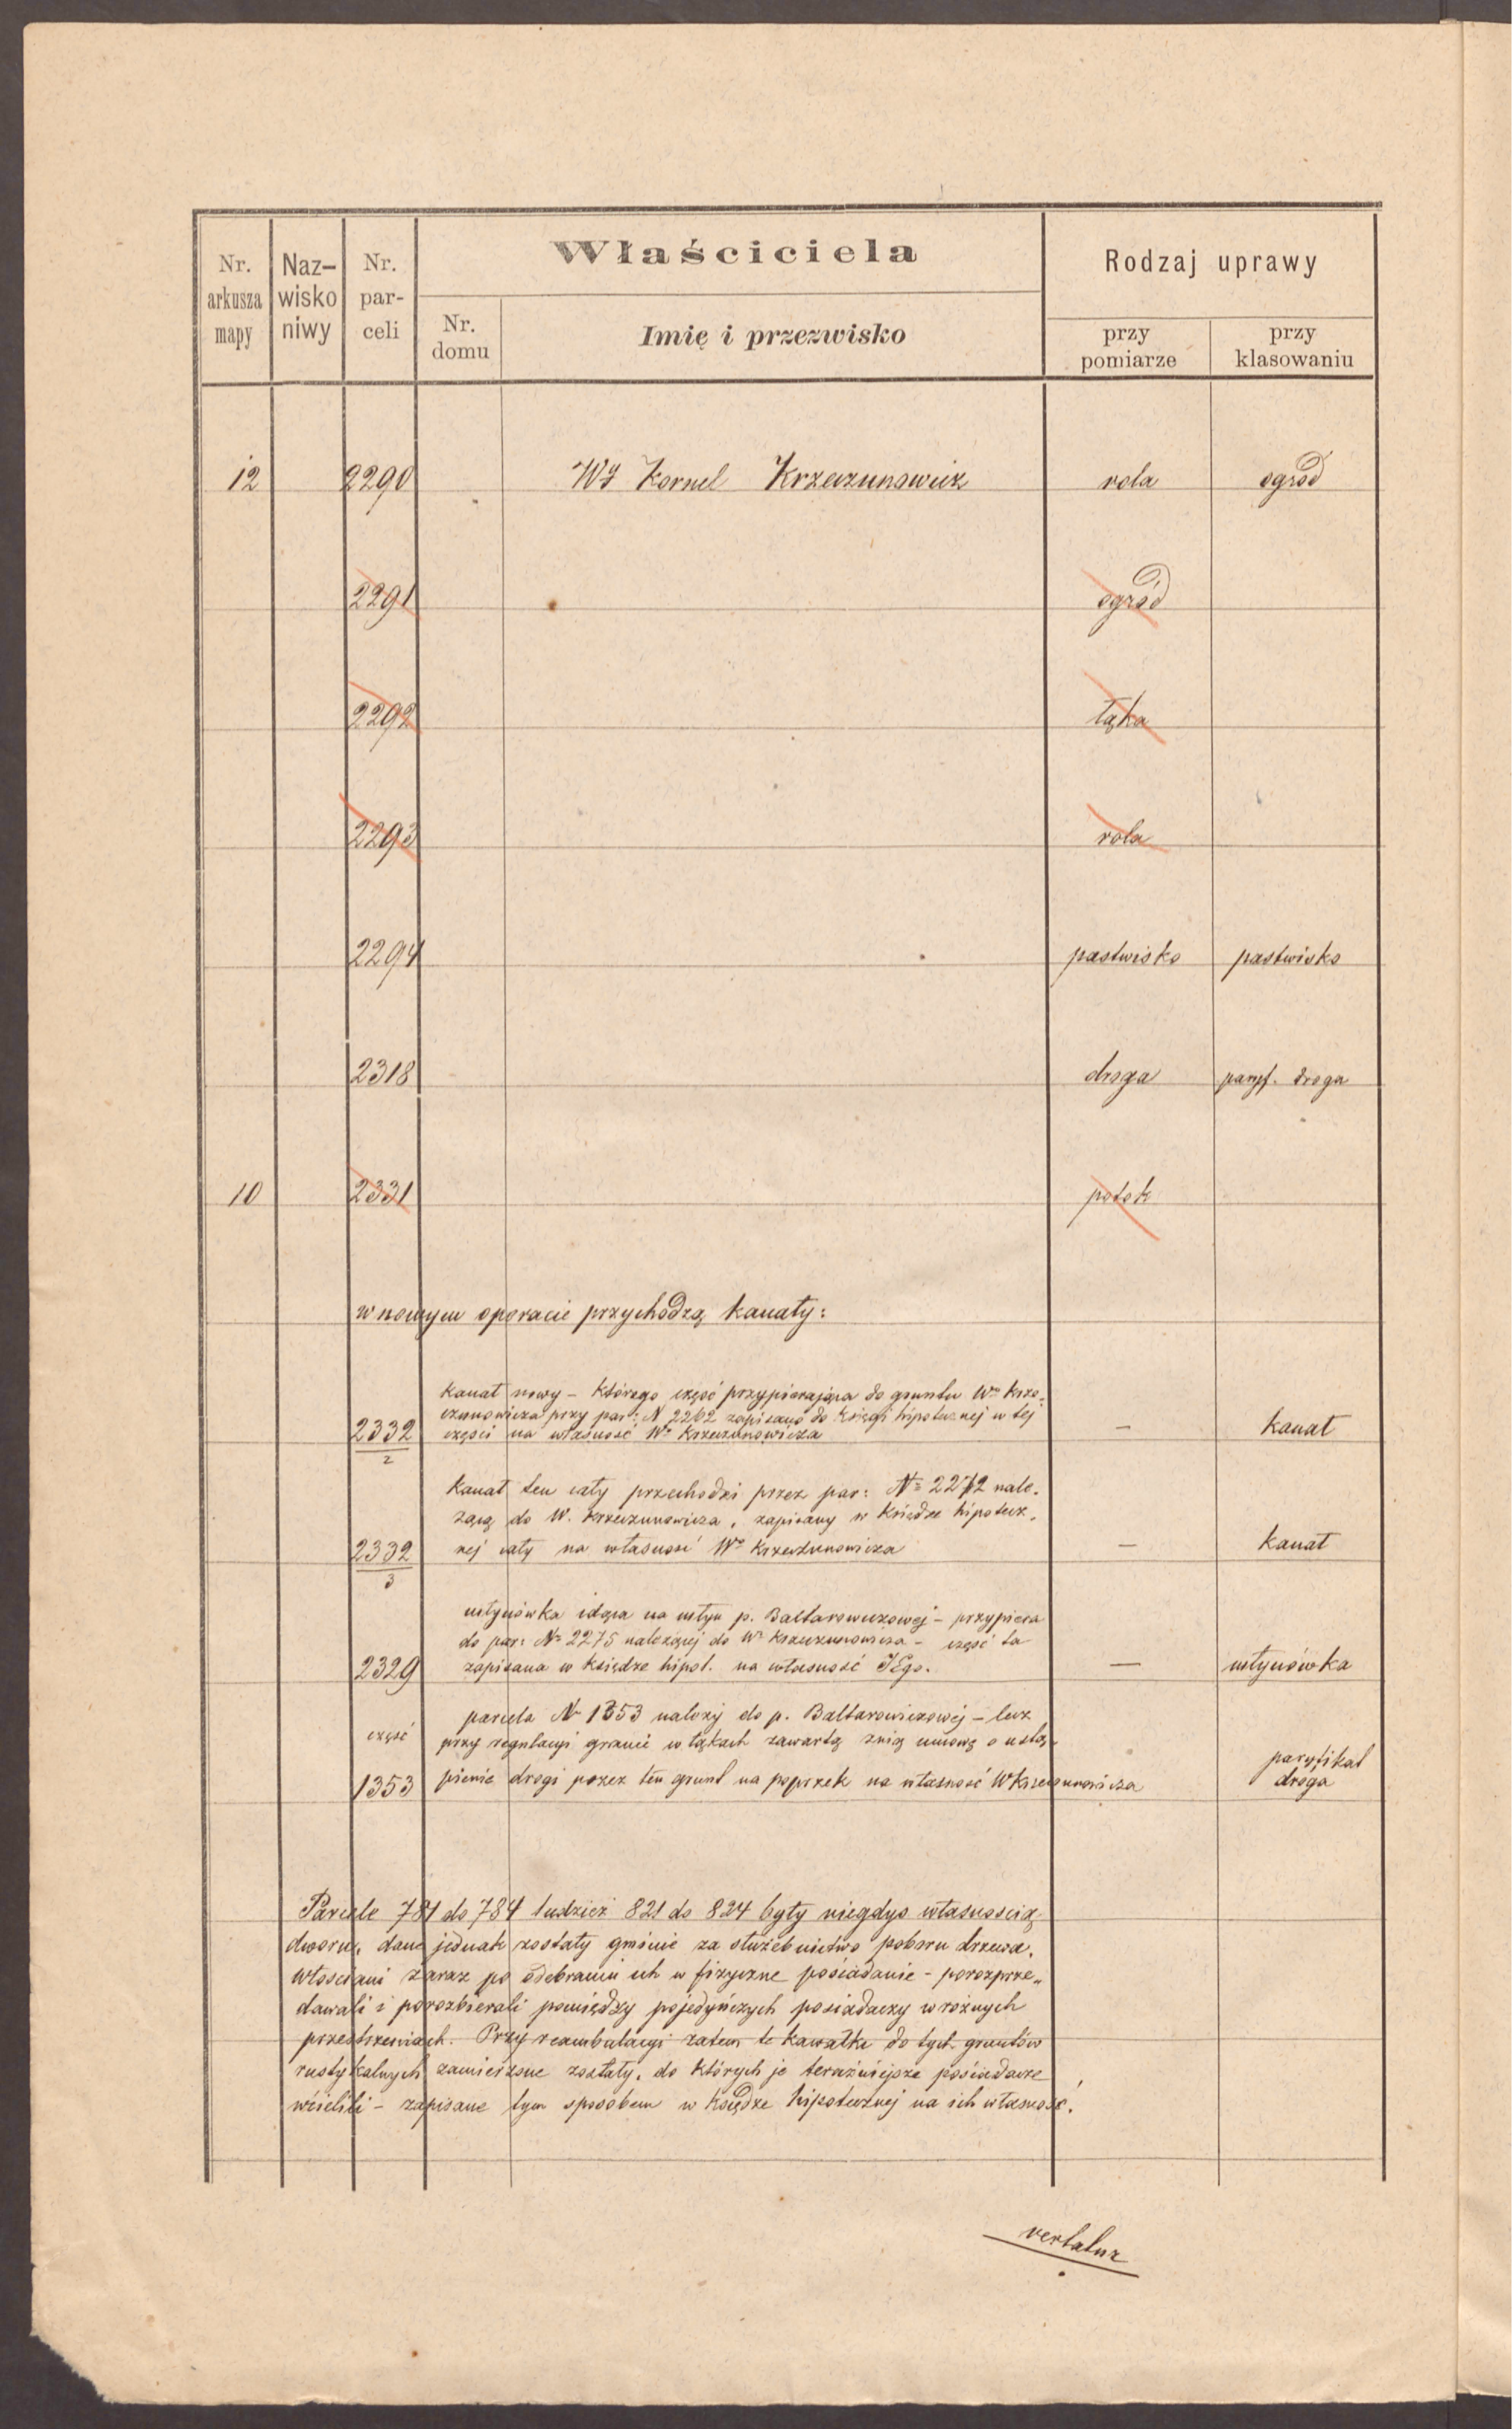 Nr. arkusza mapy | Naz- wisko niwy | Nr. par- celi | Właściciela | Rodzaj uprawy
Nr. domu | Imię i przezwisko | przy pomiarze | przy klasowaniu
12 | 2290 | WJ Kornel Krzeczunowicz | rola | ogród
2291 | ogród
2292 | łąka
2293 | rola
2294 | pastwisko | pastwisko
2318 | droga | paryf. droga
10 | 2331 | potok
w nowym operacie przychodzą kanały:
Kanał nowy – którego część przypierająca do gruntu Wo Krze-
czunowicza przy par: N 2262 zapisano do Księgi hipotecznej w tej
2332/2 | części na własność Wo Krzeczunowicza | — | kanał
Kanał ten cały przechodzi przez par: No 2272 nale-
żącą do W. Krzeczunowicza, zapisany w Księdze hipotecz-
2332/3 | nej cały na własność Wo Krzeczunowicza | — | kanał
młynówka idąca na młyn p. Baltarowiczowej – przypiera
do par: No 2275 należącej do Wo Krzeczunowicza – część ta
2329 | zapisana w Księdze hipot. na własność JEgo. | — | młynówka
parcela No 1353 należy do p. Baltarowiczowej – lecz
część | przy regulacyi granic w łąkach zawartą z nią umową o ustą-
1353 | pienie drogi przez ten grunt na poprzek na własność W Krzeczunowicza | paryfikat droga
Parcele 781 do 784 tudzież 821 do 824 były niegdyś własnością
dworu, dane jednak zostały gminie za służebnictwo poboru drzewa.
Włościani zaraz po odebraniu ich w fizyczne posiadanie – porozprze-
dawali i porozbierali pomiędzy pojedyńczych posiadaczy w rożnych
przestrzeniach. Przy reambulacyi zatem te kawałki do tych gruntów
rustykalnych zamierzone zostały, do których je teraźniejsze posiadacze
wcielili – zapisane tym sposobem w księdze hipotecznej na ich własność.
vertatur